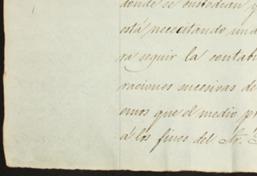 donde se custodian y
está necesitando una
ra seguir la contabi
raciones sucesivas de
emos que el medio pr
á los fines del Sr.